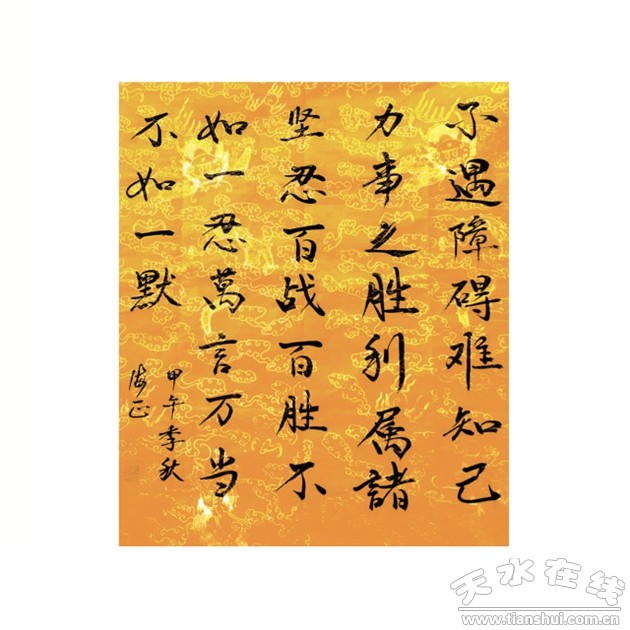 不遇障碍难知己
力事之胜利属諸
坚忍百战百胜不
如一忍萬言万当
不如一默
甲午季秋
海正
天水在线
www.tianshui.com.cn